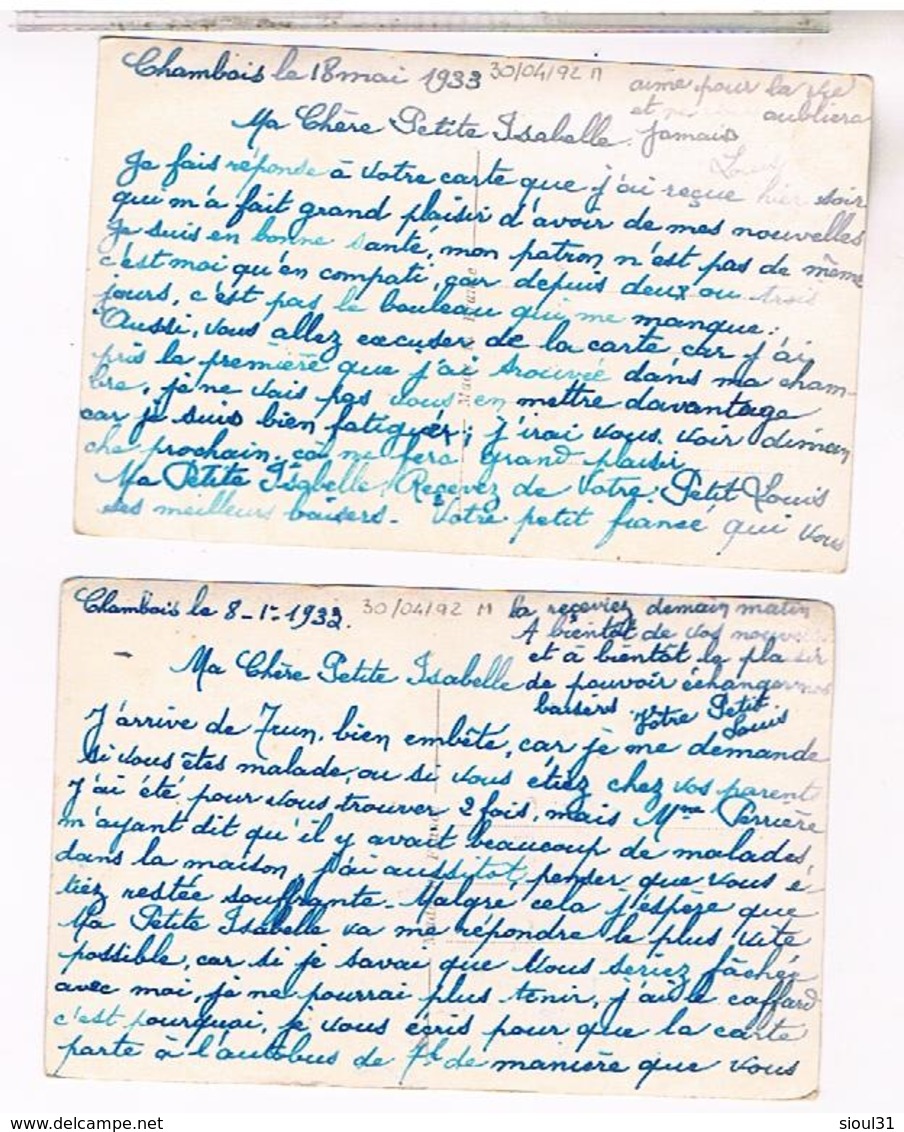 Chambois le 18 mai 1933
30/04/92 M
Ma Chère Petite Isabelle.
Je fais réponse à votre carte que j'ai reçue hier soir
qui m'a fait grand plaisir d'avoir de mes nouvelles
Je suis en bonne santé, mon patron n'est pas de même
c'est moi qu'en compati, car depuis deux ou trois
jours, c'est pas le bouleau qui me manque.
Aussi, vous allez excuser de la carte, car j'ai
pris la première que j'ai trouvé dans ma cham-
bre, je ne vais pas vous en mettre davantage
car je suis bien fatiguér, j'irai vous voir diman
che prochain, ça me fera grand plaisir
Ma Petite Isabelle, Recevez de Votre Petit Louis
ses meilleurs baisers. Votre petit fiancé qui vous
aime pour la vie
et ne oubliera
Jamais
Louis
Made France
Chambois le 8-1-1933.
30/04/92 M
Ma Chère Petite Isabelle
J'arrive de Trun, bien embêté, car je me demande
si vous êtes malade, ou si vous étiez chez vos parents
J'ai été pour vous trouver 2 fois, mais Mme Perrière
m'ayant dit qu'il y avait beaucoup de malades,
dans la maison, j'ai aussitot, penser que vous é-
tiez restée souffrante. Malgré cela j'espère que
Ma Petite Isabelle va me répondre le plus vite
possible, car si je savai que Vous seriez fâchée
avec moi, je ne pourrai plus tenir, j'ai le caffard
c'est pourquoi, je vous écris pour que la carte
parte à l'autobus de de manière que vous
la receviez demain matin
A bientôt de vos nouvelles
et à bientôt le plaisir
de pouvoir échanger nos
baisers. Votre Petit
Louis
Made France
sioul31